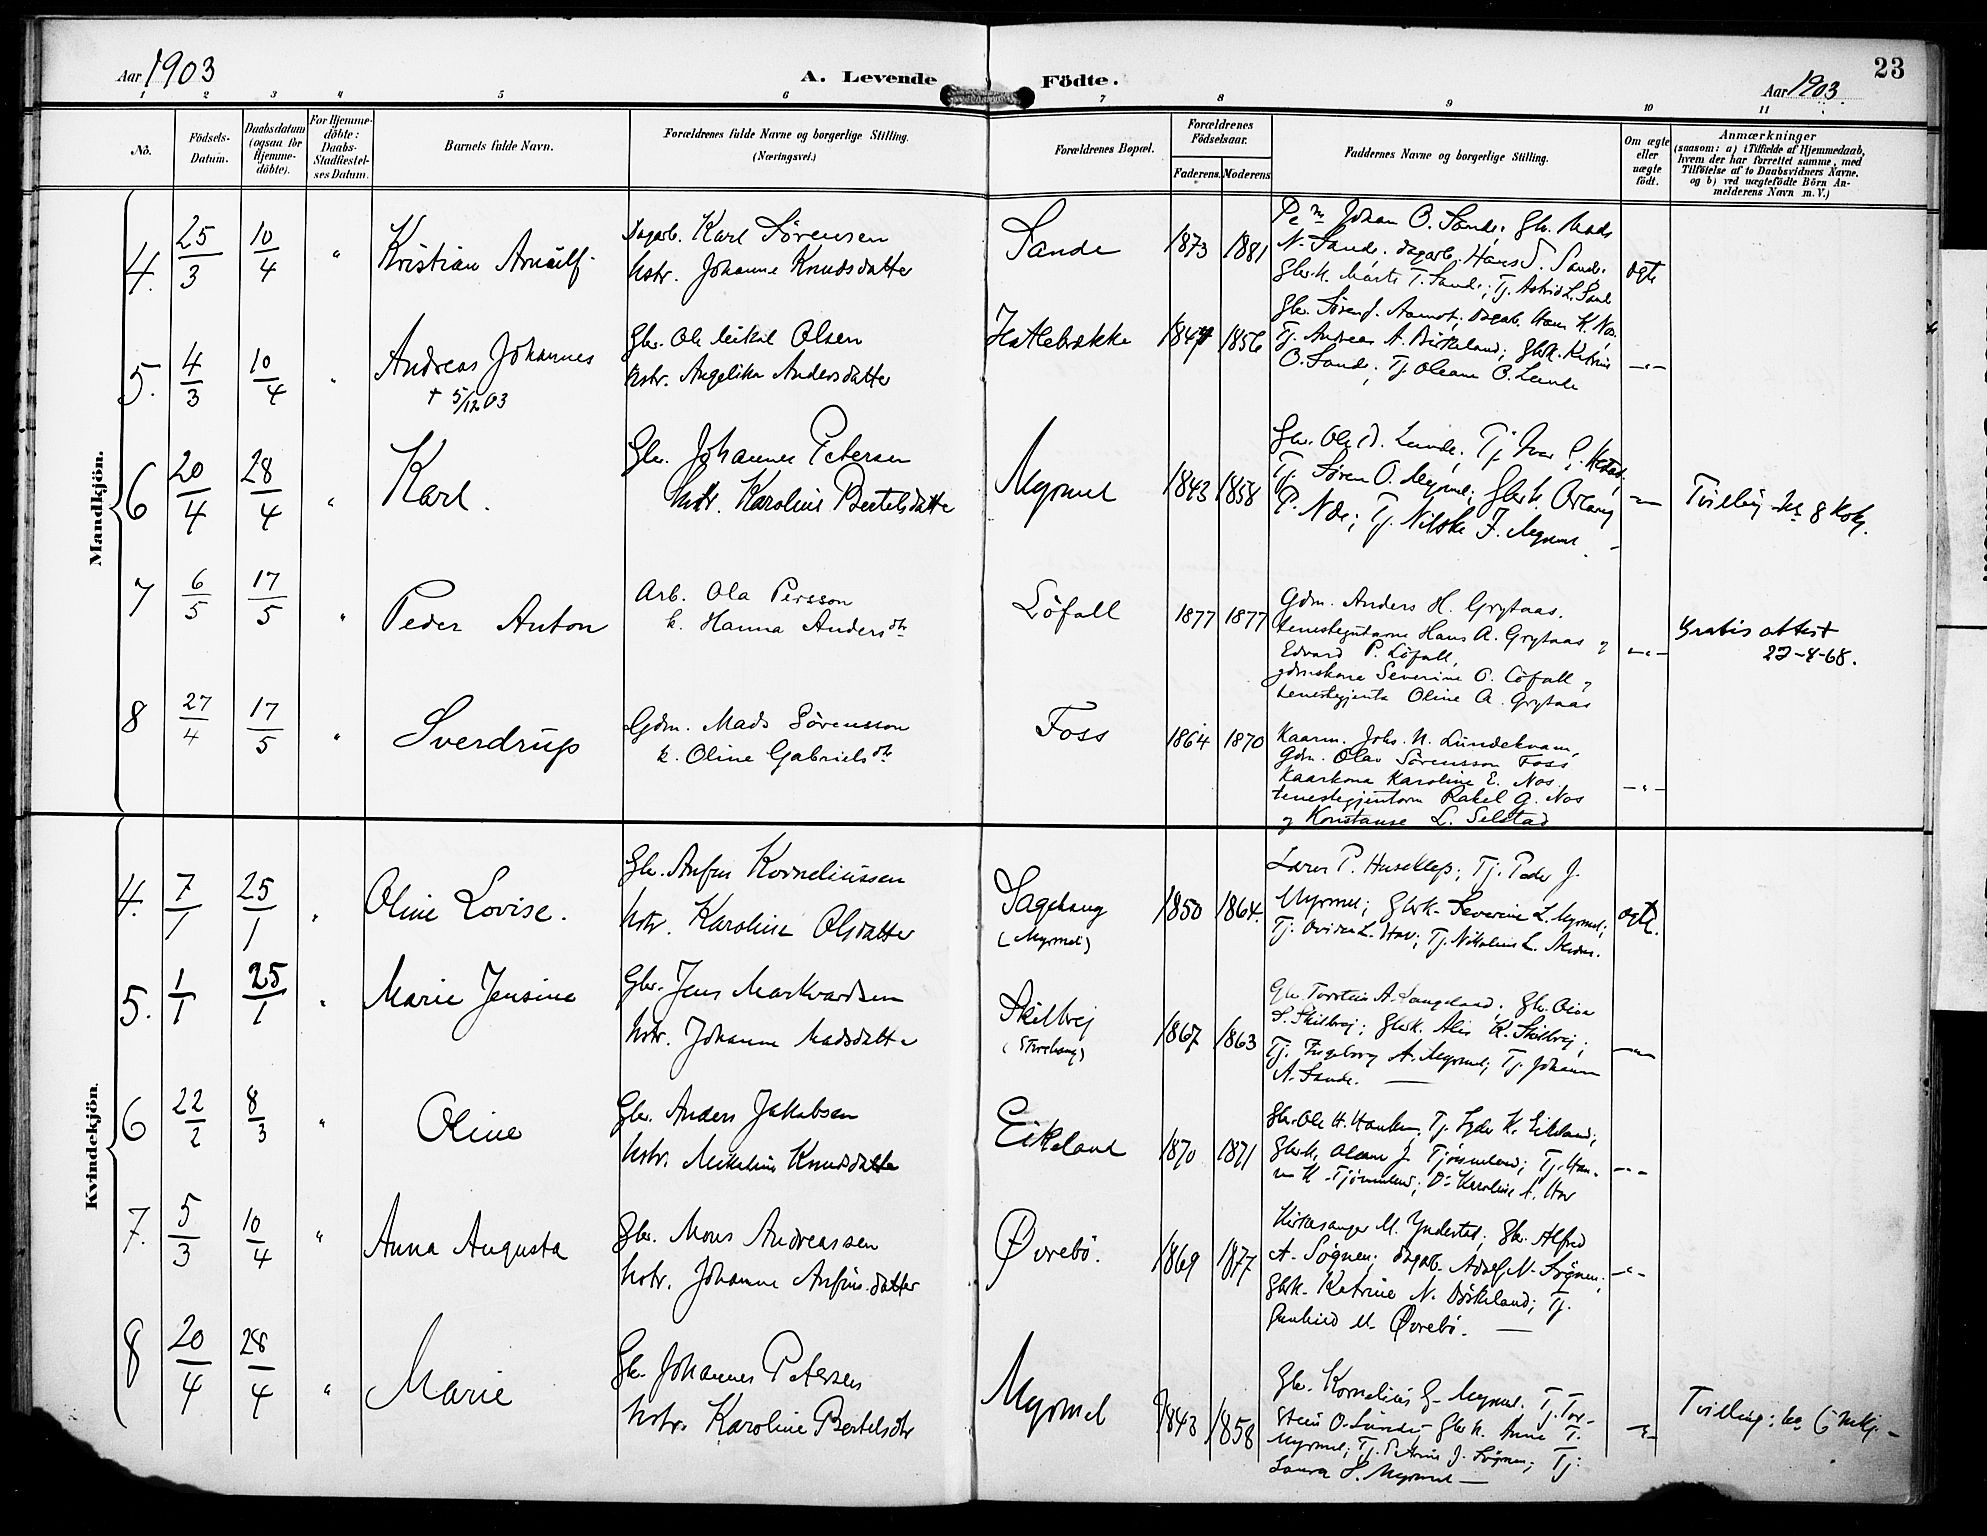 Aar 1903
A. Levende Födte.
23
Aar 1903.
1 2 3 4 5 6 7 8 9 10 11
No.
Födsels-Datum.
Daabsdatum (ogsaa for Hjemme-döbte).
For Hjemme-döbte: Daabs-Stadfæstel-ses Datum.
Barnets fulde Navn.
Forældrenes fulde Navne og borgerlige Stilling. (Næringsvei.)
Forældrenes Bopæl.
Forældrenes Födselsaar.
Faderens. Moderens.
Faddernes Navne og borgerlige Stilling.
Om ægte eller uægte födt.
Anmærkninger
(saasom: a) i Tilfælde af Hjemmedaab, hvem der har forrettet samme, med Tilföielse af to Daabsvidners Navne. og b) ved uægtefödte Börn An-melderens Navn m. V.)
Mandkjön.
4. 25/3 10/4 " Kristian Arnulf.
Dagarb. Karl Sørensen
Hstr. Johanne Knudsdatter
Sande 1873 1881
Johan O. Sande; Gbr. Mads
N. Sande. Dagarb. Hans S. Sande.
Gbrk. Marte T. Sande; Tj. Astrid L. Sande
ægte
5. 4/3 10/4 " Andreas Johannes
+ 5/12 03
Gbr. Ole Mikal Olsen
Hstr. Angelika Andersdatter
Hatlebrække 1847 1856
Gbr. Søren J. Aamot; Dagarb. Hans K. Nos.
Tj. Andreas A. Birkeland; Gbrk. Katrine
O. Sande; Tj. Oleane O. Lunde
— " —
6 20/4 28/4 " Karl.
Gbr. Johannes Petersen
Hstr. Karoline Bertelsdatter
Myrmel 1843 1858
Gbr. Ole D. Lunde; Tj. Ivar
Tj. Søren O. Myrmel; Gbrk.
P. Nos; Tj. J. Myrmel.
— " —
Tvilling 8
7 6/5 17/5 " Peder Anton
Arb. Ola Persson
k. Hanna Andersdtr
Löfall 1877 1877
Gdm. Anders H. Grytaas.
tenestegutarne Hans A. Grytaas og
Edvard P. Löfall,
gdmskone Severine O. Löfall og
tenestegjenta Oline A. Grytaas
— " —
Gratis attest
22-8-68.
8 27/4 17/5 " Sverdrup
Gdm. Mads Sörensson
k. Oline Gabrielsdtr
Foss 1864 1870
Kaarm. Johs. N. Lundekvam,
Gdm. Olav Sörensson Foss
Kaarkona Karoline E. Nos
tenestegjentorn Rakel G. Nos
og Konstanse L. Selstad
— " —
Kvindekjön.
4. 7/1 25/1 " Oline Lovise.
Gbr. Anfin Korneliussen
Hstr. Karoline Olsdatter
Sagehaug
(Myrmel)
1850 1864.
Lærer P. Huseklep; Tj. Peder J.
Myrmel; Gbrk. Severine L. Myrmel;
Tj. L. Hov; Tj. Nikoline L.
ægte.
5. 1/1 25/1 " Marie Jensine
Gbr. Jens Markvardsen
Hstr. Johanne Madsdatter
Skilbrej
1867 1863
Gbr. Torstein A. Langeland; Gbr.
S. Skilbrej; Gbrk. K. Skilbrej;
Tj. Ingeborg A. Myrmel; Tj. Johanne
A. Sande. —
— " —
6 22/2 8/3 " Oline
Gbr. Anders Jakobsen
Hstr. Mikaline Knudsdatter
Eikeland 1870 1871
Gbr. Ole H. Tj. K. Eikeland;
Gbrk. J. Tjønneland; Tj. Han-
na K. Tjønneland; Do Karoline A. Hov
— " —
7. 5/3 10/4 " Anna Augusta
Gbr. Mons Andreassen
Hstr. Johanne Anfinsdatter
Øvrebö. 1869 1877
Kirkesanger M. Yndestad; Gbr. Alfred
A. Sögnen; Dagarb. Adolf N. Sögnen;
Gbrk. Katrine N. Birkeland; Tj.
Gunhild M. Øvrebö. —
— " —
8 20/4 28/4 " Marie
Gbr. Johannes Petersen
Hstr. Karoline Bertelsdtr
Myrmel 1843 1858
Gbr. Kornelius G. Myrmel. Tj. Tor-
stein O. Lunde Gbrk. Anne T.
Myrmel; Tj. Petrine J. Sögnen; Tj.
Laura S. Myrmel —
— " —
Tvilling: 6 Mkj. —